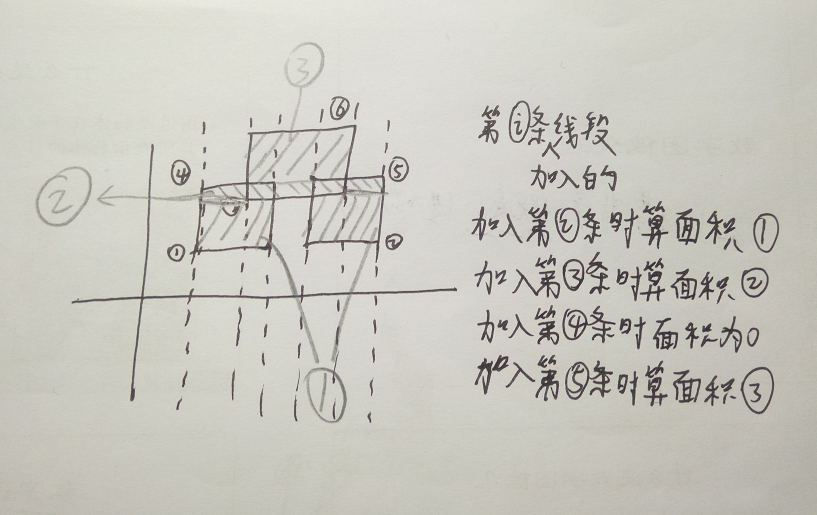 ③
⑥
④
⑤
②
③
①
②
①
第ⓘ条线段
加入的
加入第②条时算面积①
加入第③条时算面积②
加入第④条时面积为0
加入第⑤条时算面积③